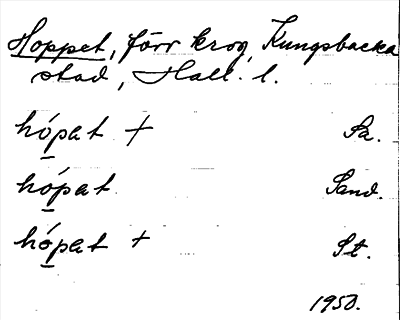 Hoppet, förr krog, Kungsbacka
stad, Hall. l.
hópat + Sa.
hópat Sand.
hópat + St.
1950.